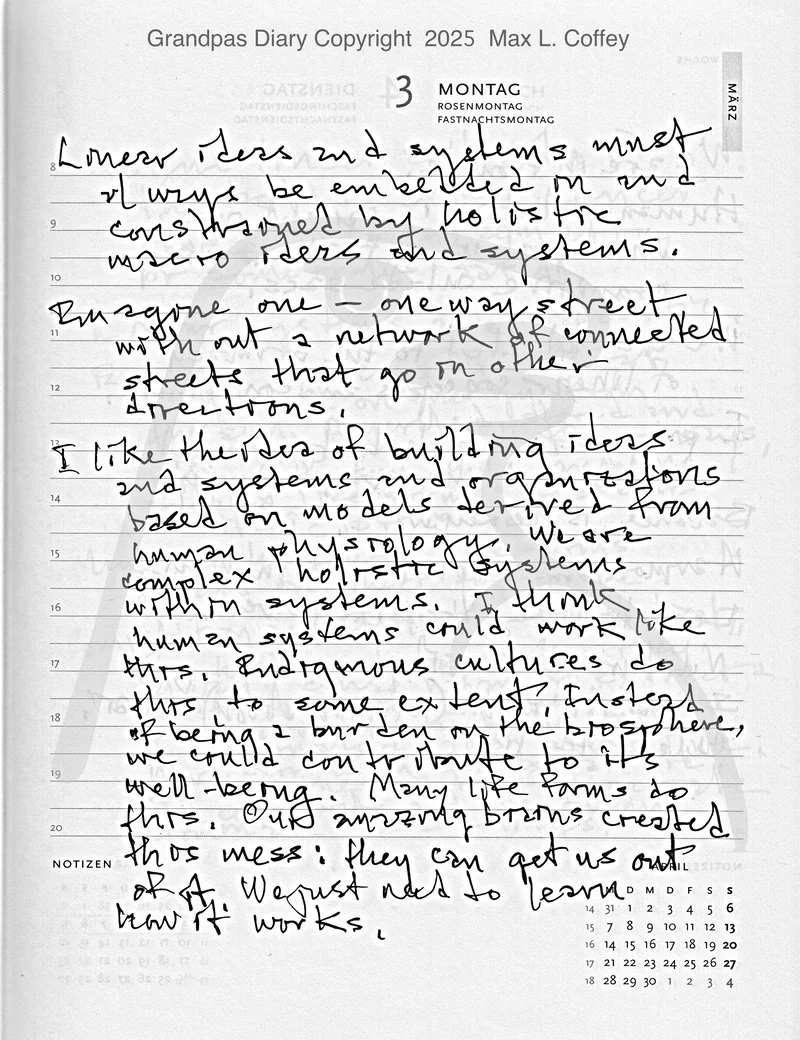 Grandpas Diary Copyright 2025 Max L. Coffey
3 MONTAG
ROSENMONTAG
FASTNACHTSMONTAG
MÄRZ
Linear ideas and systems must
always be embedded in and
constrained by holistic
macro ideas and systems.
Imagine one – one way street
with out a network of connected
streets that go in other
directions.
I like the idea of building ideas
and systems and organizations
based on models derived from
human physiology. We are
complex holistic systems
within systems. I think
human systems could work like
this. Indigenous cultures do
this to some extent. Instead
of being a burden on the biosphere,
we could contribute to its
well-being. Many life forms do
this. Our amazing brains created
this mess: they can get us out
of it. We just need to learn
how it works.
8
9
10
11
12
13
14
15
16
17
18
19
20
NOTIZEN
APRIL
M D M D F S S
14 31 1 2 3 4 5 6
15 7 8 9 10 11 12 13
16 14 15 16 17 18 19 20
17 21 22 23 24 25 26 27
18 28 29 30 1 2 3 4